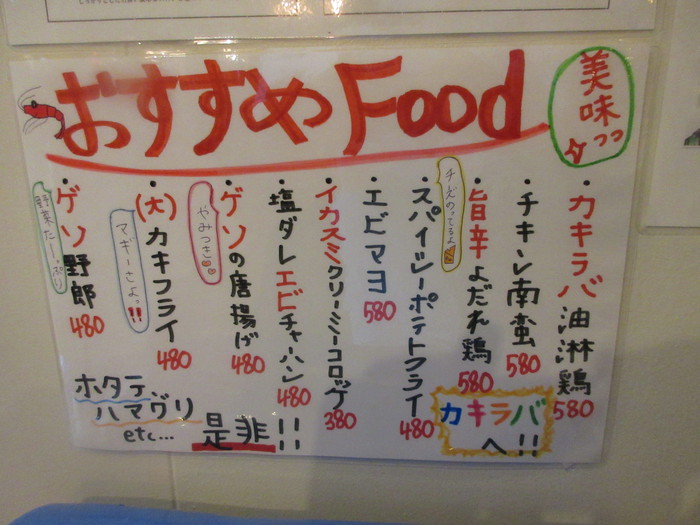 おすすめFood
美味
タっっ
・カキラバ油淋鶏
580
・チキン南蛮
580
・旨辛よだれ鶏
580
・スパイシーポテトフライ
480
チズのってるよ
・エビマヨ
580
・イカスミクリーミーコロッケ
380
・塩ダレエビチャーハン
480
・ゲソの唐揚げ
480
やみつき
・(大)カキフライ
480
マヂーさよ。!!
・ゲソ野郎
480
野菜たーっぷり
ホタテ、
ハマグリ
etc...
是非!!
カキラバ
へ!!